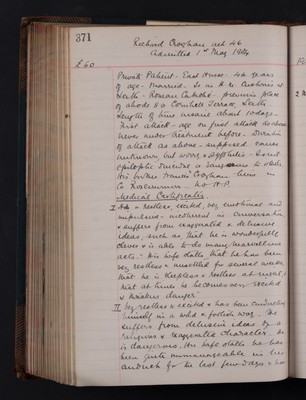 371
Richard Croghan aet 46
Admitted 1st May 1914
£60
Private Patient. East House. 46 years
of age. Married. Is an H.M. Customs at
Leith. Roman Catholic. Previous place
of abode 8a Cornhill Terrace, Leith.
Length of time insane about 10 days.
First attack - age on first attack as above
Never under treatment before. Duration
of attack as above - supposed cause
unknown but worry &
epileptic Suicidal or dangerous to others.
His brother Croghan lives in
Co Roscommon. No H.P.
Medical Certificates
I Is restless, excited, very emotional and
impulsive - incoherent in conversation
& suffers from exaggerated & delusive
ideas, such as that he is wonderfully
clever & is able to do many marvellous
acts. His wife states that he has been
very restless & unsettled for several weeks
that he is sleepless & restless at night,
that at times he becomes very excited
& threatens danger.
II Very restless & excited & has been conducting
himself in a wild & foolish way. He
suffers from delusive ideas of a
religious & exaggerated character. He
is dangerous. His wife states he has
been quite unmanageable in his
conduct for the last few days & has